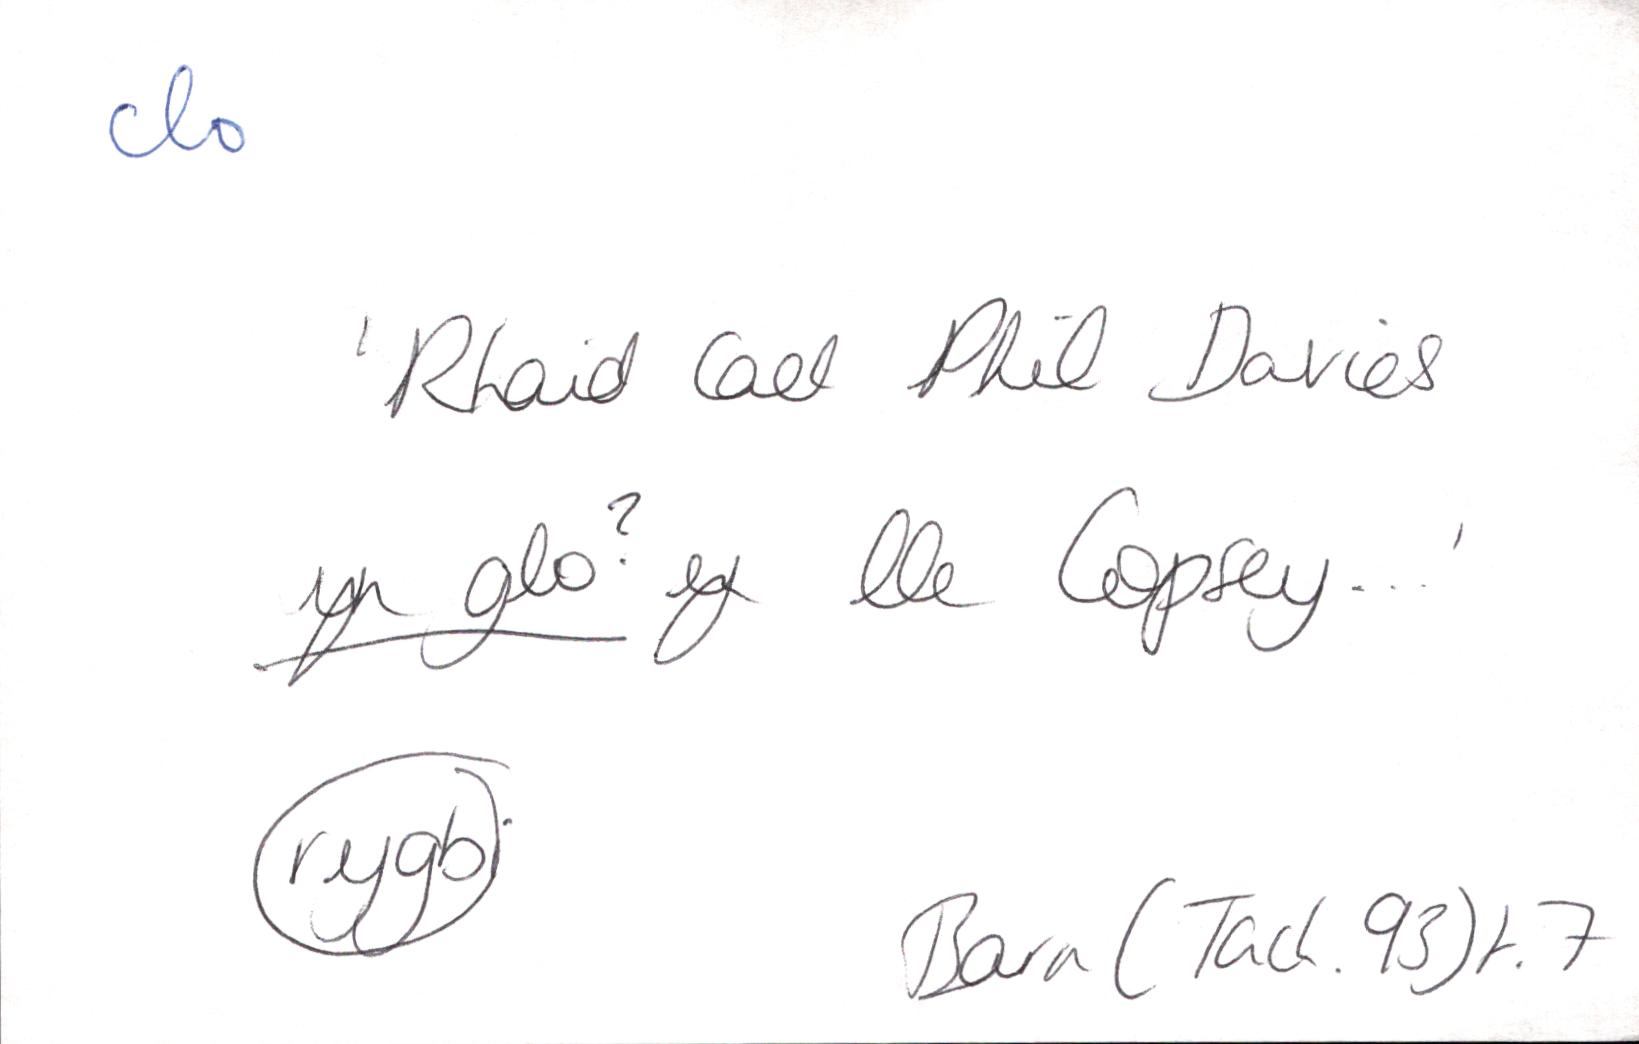 clo
'Rhaid cael Phil Davies
yn glo? yn lle Copsey...'
rygbi
Barn (Tach. 93) t. 7